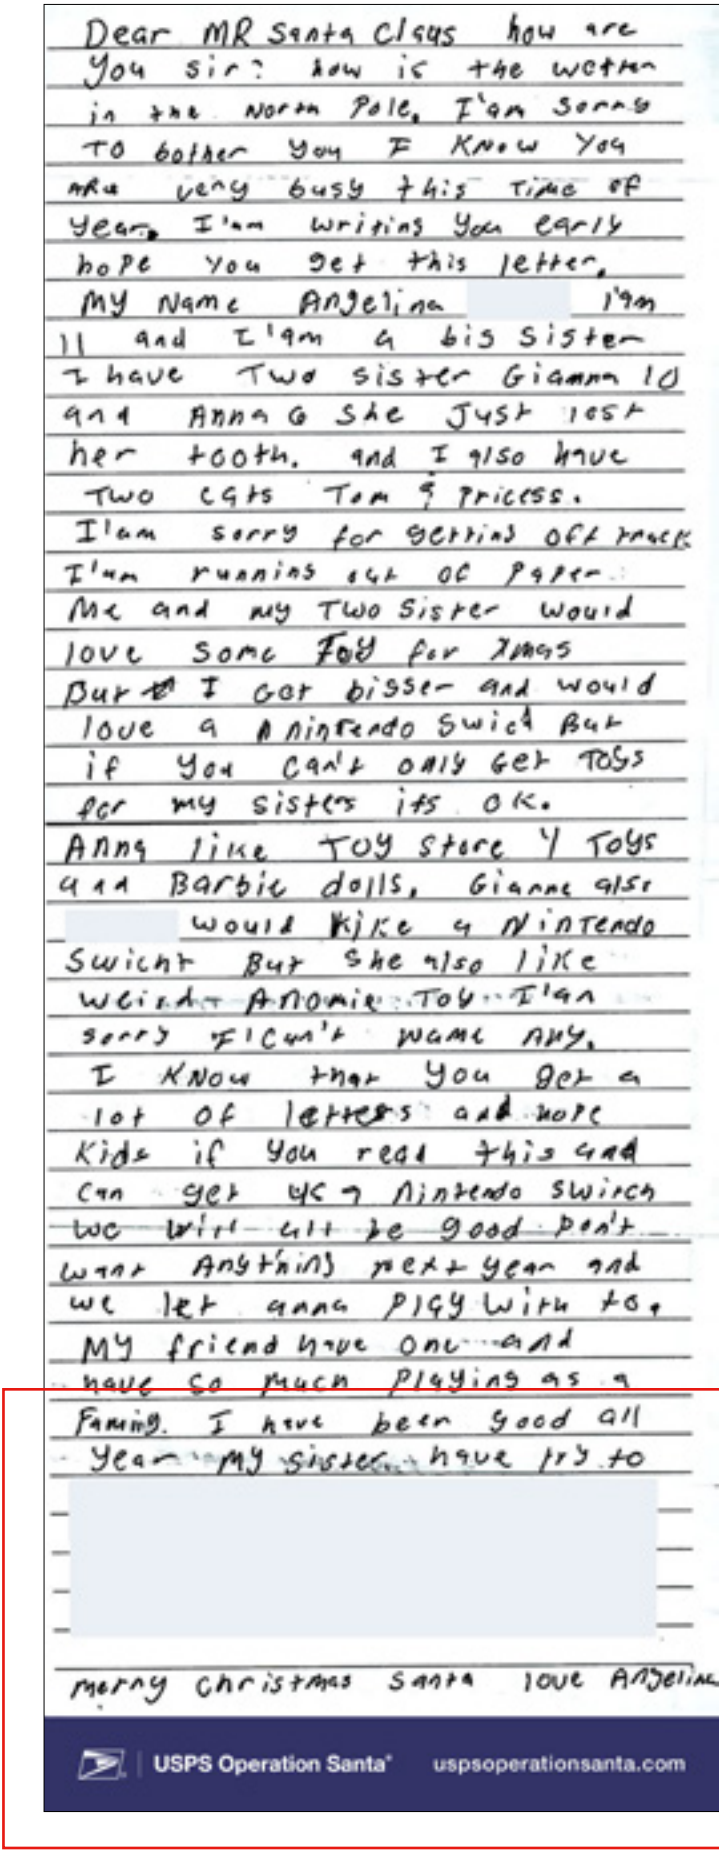 Dear MR Santa Claus how are
you sir? how is the wethen
in the North Pole. I'am sorry
TO bother you I KNow You
are very busy this Time of
year. I'am writing you early
hope You get this letter.
My Name Angelina I'am
11 and I'am a big Sister
I have Two sister Gianna 10
and Anna 6 She Just lost
her tooth. and I also have
Two cats Tom & Pricess.
I'am sorry for getting off track
I'am running out of Paper.
Me and my Two Sister Would
love some Toy for Xmas
But I Got bigger and would
love a nintendo Swich But
if you can't only Get Toys
for my sisters its OK.
Anna like TOY Store 4 Toys
and Barbie dolls. Gianna also
would like a NinTendo
Swicht But She also like
weird Anomie Toy I'an
sorry I can't Name Any.
I KNow that you get a
lot of letters and hope
Kids if you read this and
Can get us a Nintendo Switch
we will all be good Don't
want Anything next year and
we let anna Play With to.
MY friend have one and
have so much Playing as a
Family. I have been good all
Year my sister have try to
merry christmas Santa love Angelina
USPS Operation Santa® uspsoperationsanta.com